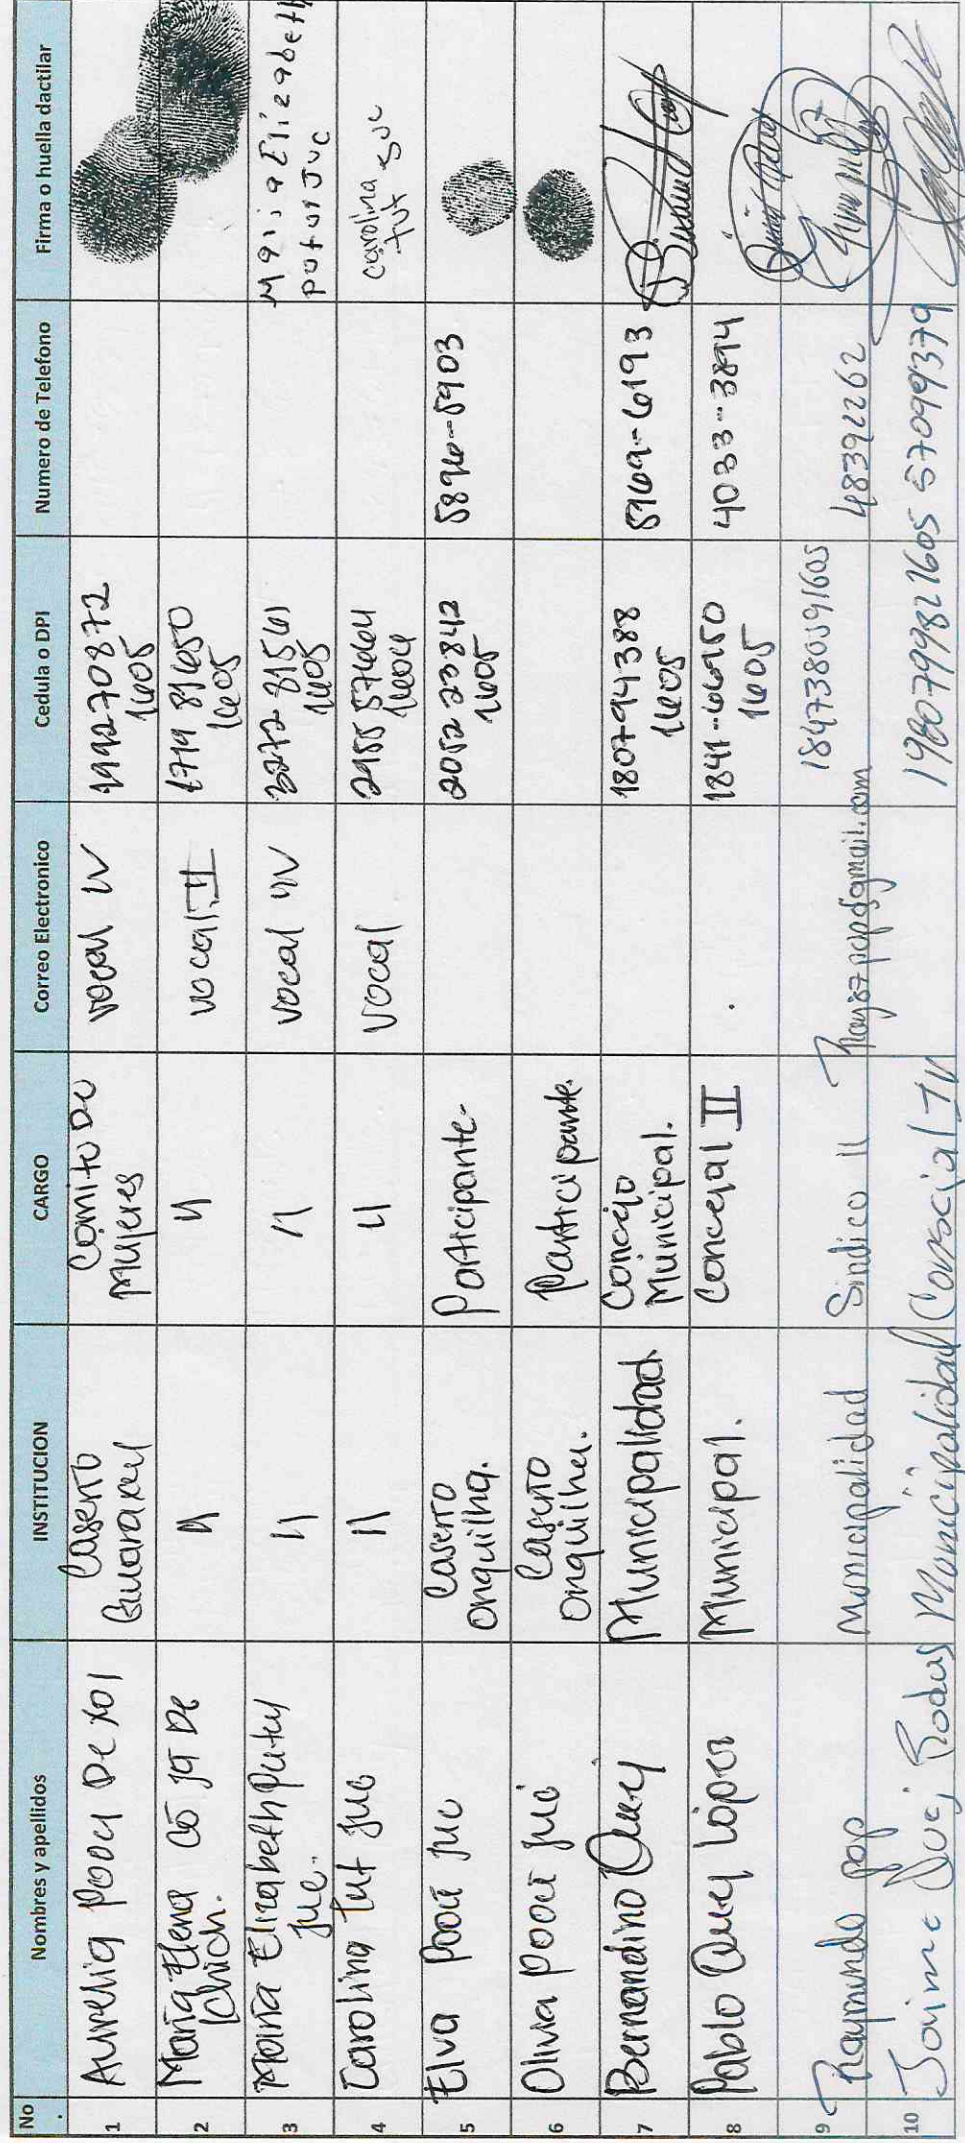 No.
Nombres y apellidos
INSTITUCION
CARGO
Correo Electronico
Cedula o DPI
Numero de Telefono
Firma o huella dactilar
1
Aurelia Poou De Xol
Caserio
Comite De
Mujeres
vocal IV
199270872
1605
2
Maria Elena
De
"
"
vocal II
1719 81650
1605
3
Maria Elizabeth Putuy
Juc.
"
"
vocal
3272 81561
1605
Maria Elizabeth
putul Juc
4
Carolina Tut Jub
"
"
vocal
2955 57664
1604
carolina
tut suc
5
Elva Poou Juc
Caserio
onquilha.
Participante.
2052 23842
1605
5896-5903
6
Olivia Poou Juc
Caserio
onquilha.
Participante.
7
Bernardino Quej
Municipalidad
Concejo
Municipal.
180794388
1605
5969-6193
8
Pablo Quej López
Municipal.
Concejal II
1841-66950
1605
4033-3894
9
Raymundo pop
Municipalidad
Sindico II
Ray87pop@gmail.com
1847380591605
48392262
10
Jaime Quej Rodas
Municipalidad
Conscial IV
1980799821605
57099379